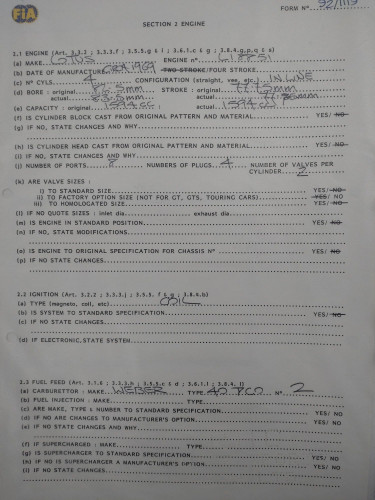 FiA
FORM Nº 92/1119
SECTION 2 ENGINE
2.1 ENGINE (Art. 3.3.2 ; 3.3.3,f ; 3.5.5.g & i ; 3.6.1.c & g ; 3.8.4.g,p,q & s)
(a) MAKE LOTUS ENGINE nº
(b) DATE OF MANUFACTURE 1969 TWO STROKE/FOUR STROKE
(c) Nº CYLS. 4 CONFIGURATION (straight, vee, etc.) IN LINE
(d) BORE : original 83.5mm STROKE : original
actual actual
(e) CAPACITY : original 1594 cc. : actual 1594 cc
(f) IS CYLINDER BLOCK CAST FROM ORIGINAL PATTERN AND MATERIAL YES/ NO
(g) IF NO, STATE CHANGES AND WHY
(h) IS CYLINDER HEAD CAST FROM ORIGINAL PATTERN AND MATERIAL YES/ NO
(i) IF NO, STATE CHANGES AND WHY
(j) NUMBER OF PORTS 8 NUMBERS OF PLUGS 4 NUMBER OF VALVES PER
CYLINDER 2
(k) ARE VALVE SIZES :
i) TO STANDARD SIZE YES/ NO
ii) TO FACTORY OPTION SIZE (NOT FOR GT, GTS, TOURING CARS) YES/ NO
iii) TO HOMOLOGATED SIZE YES/ NO
(l) IF NO QUOTE SIZES : inlet dia. exhaust dia.
(m) IS ENGINE IN STANDARD POSITION YES/ NO
(n) IF NO, STATE MODIFICATIONS
(o) IS ENGINE TO ORIGINAL SPECIFICATION FOR CHASSIS Nº YES/ NO
(p) IF NO STATE CHANGES
2.2 IGNITION (Art. 3.2.2 ; 3.3.3.j ; 3.5.5.
(a) TYPE (magneto, coil, etc) COIL
(b) IS SYSTEM TO STANDARD SPECIFICATION YES/ NO
(c) IF NO STATE CHANGES
(d) IF ELECTRONIC,STATE SYSTEM
2.3 FUEL FEED (Art. 3.1.6 ; 3.3.3.h ; 3.5.5.c & d ; 3.6.1.f ; 3.8.4.
(a) CARBURETTOR : MAKE WEBER TYPE 40 DCO Nº 2
(b) FUEL INJECTION : MAKE TYPE
(c) ARE MAKE, TYPE & NUMBER TO STANDARD SPECIFICATION YES/ NO
(d) IF NO ARE CHANGES TO MANUFACTURER'S OPTION YES/ NO
(e) STATE CHANGES AND WHY
(f) IF SUPERCHARGED : MAKE TYPE
(g) IS SUPERCHARGER TO STANDARD SPECIFICATION YES/ NO
(h) IF NO IS SUPERCHARGER A MANUFACTURER'S OPTION YES/ NO
(i) IF NO STATE CHANGES